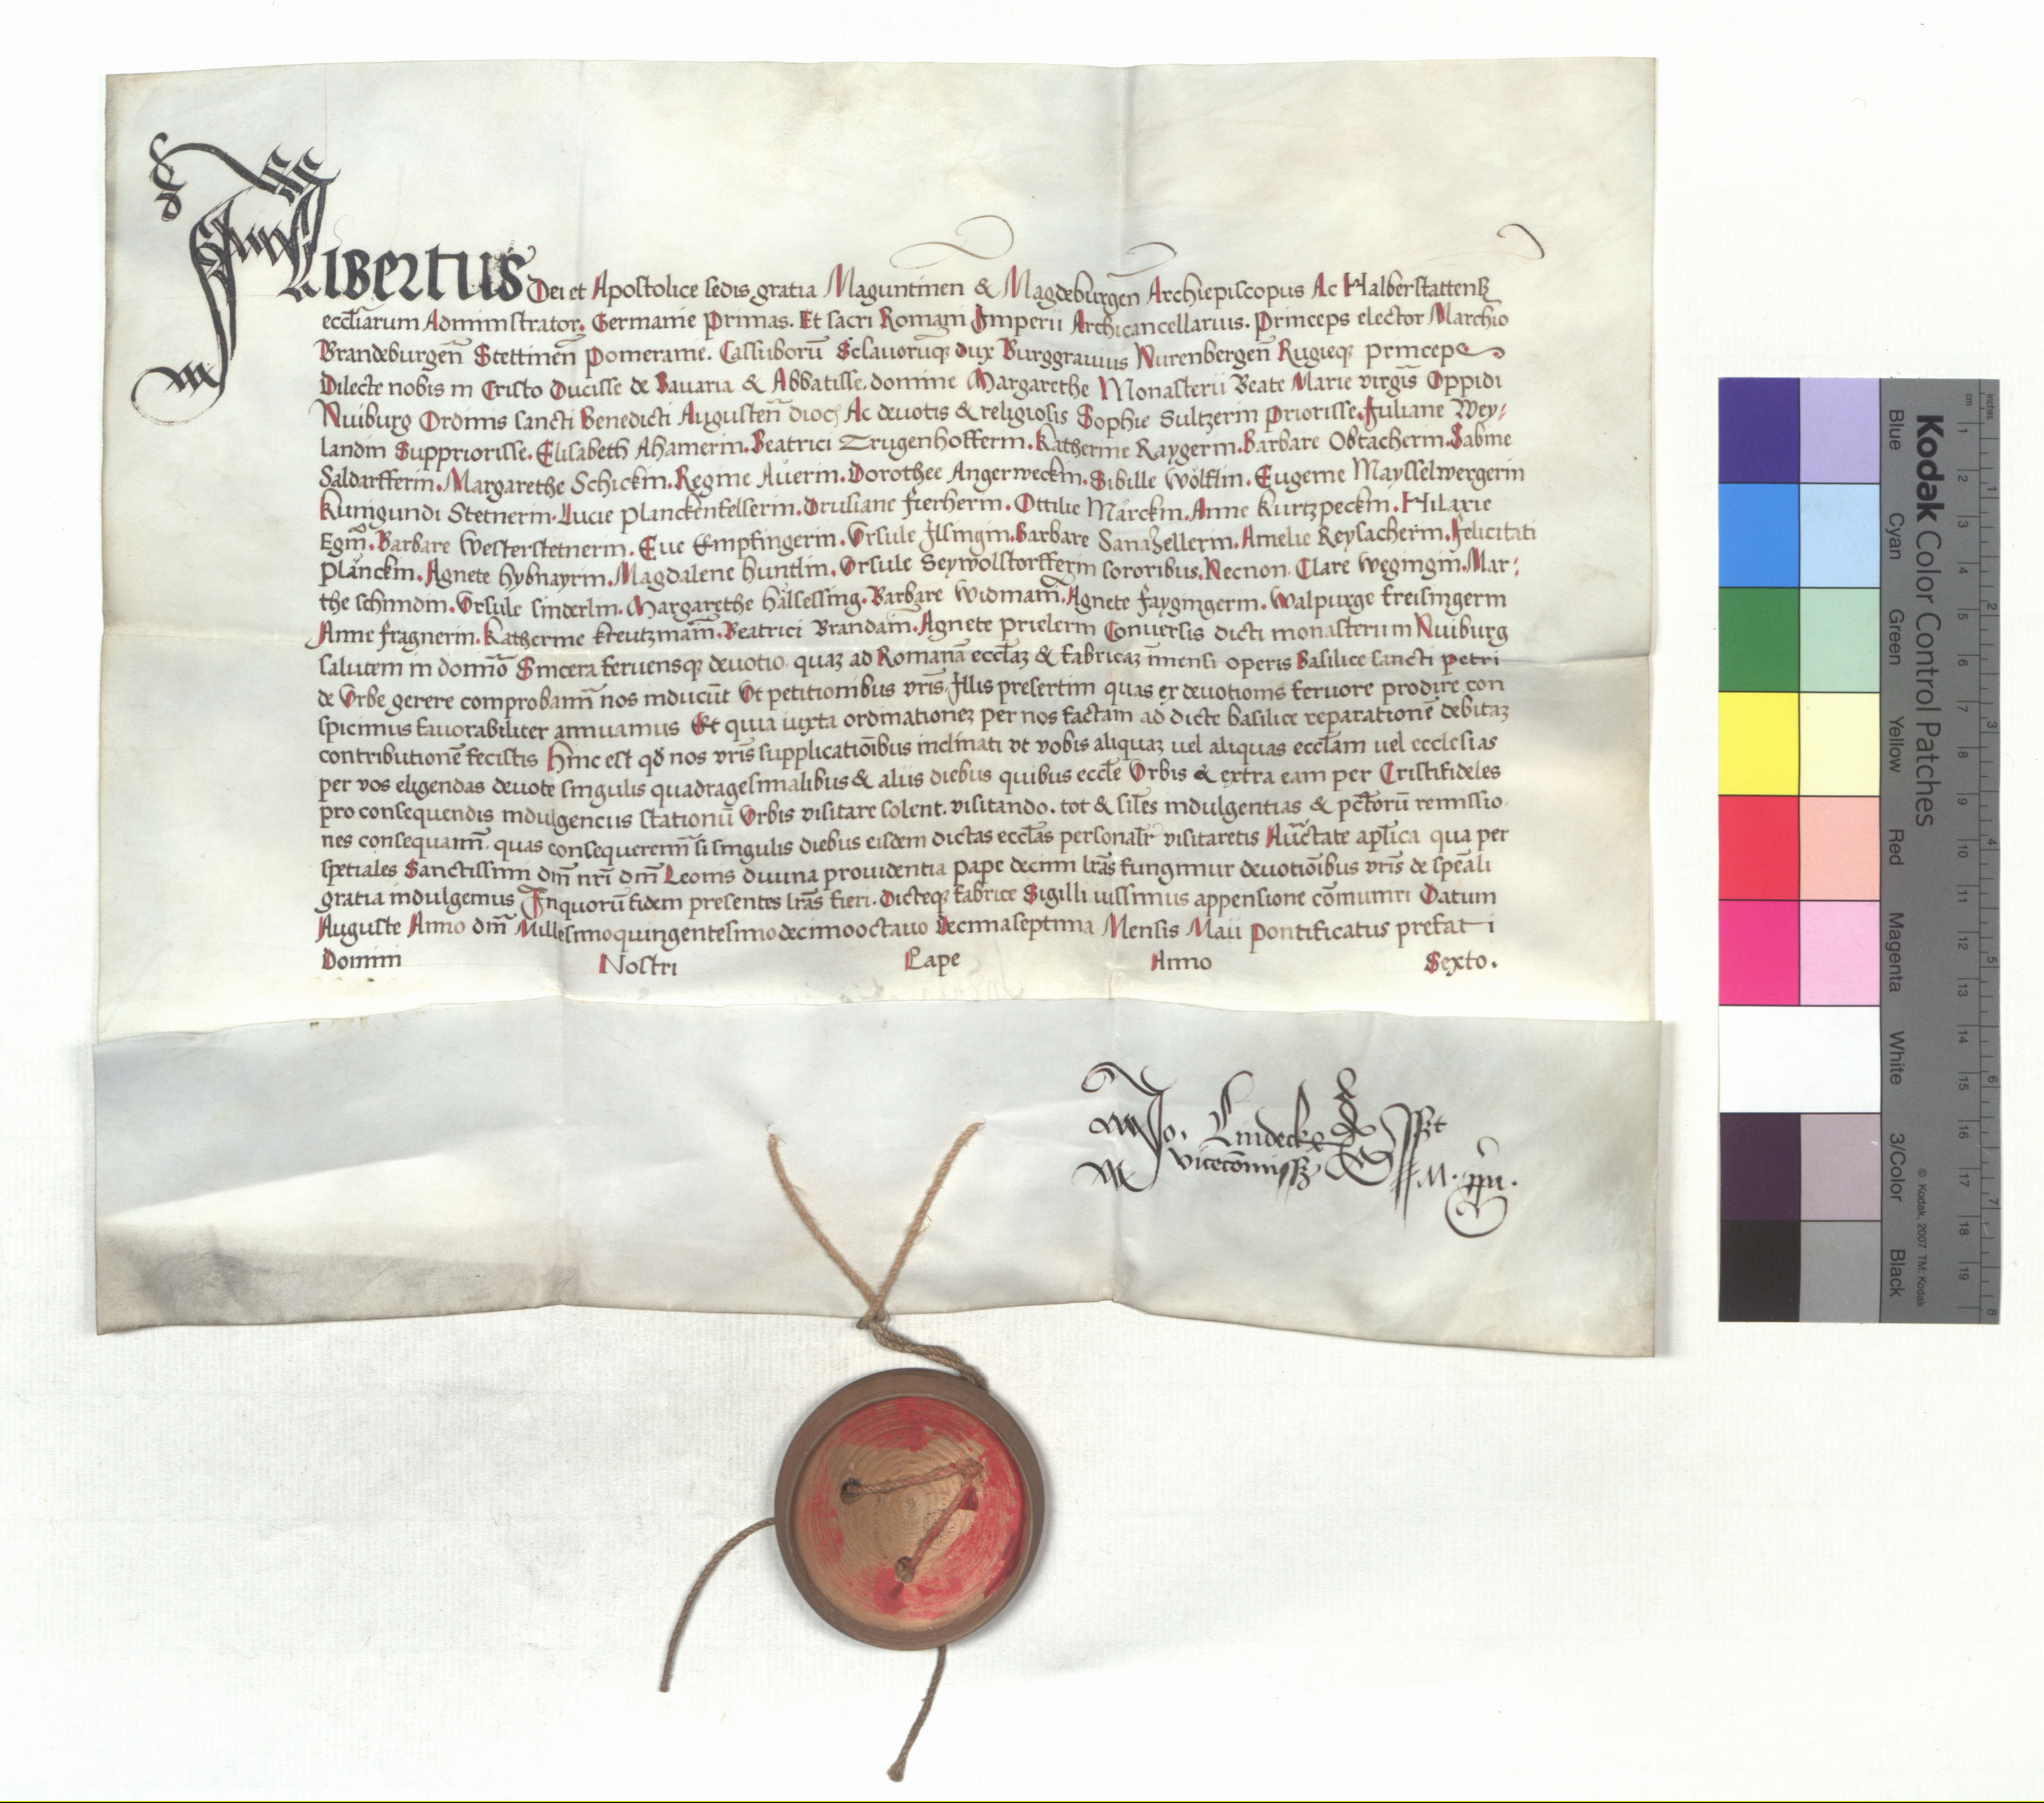 Albertus Dei et Apostolice sedis gratia Maguntineñ & Magdeburgeñ Archiepiscopus Ac Halberstattenß
eccl̃iarum Administrator. Germanie Primas. Et sacri Romani Imperii Archicancellarius. Princeps elector Marchio
Brandeburgeñ Stettineñ Pomeranie. Cassuborũ Sclauorũqȝ dux Burggrauius Nurenbergeñ Rugieqȝ princeps
Dilecte nobis in Cristo Ducisse de Bauaria & Abbatisse. domine Margarethe Monasterii Beate Marie virgĩs Oppidi
Nuiburg Ordinis sancti Benedicti Augusteñ dioc̃ Ac deuotis & religiosis Sophie Sultzerin Priorisse. Juliane Wey⸗
landin Suppriorisse. Elisabeth Ahamerin. Beatrici Trugenhofferin. Katherine Raygerin. Barbare Obtacherin. Sabine
Saldarfferin. Margarethe Schickin. Regine Auerin. Dorothee Angerweckin. Sibille Wölflin. Eugenie Maysselwergerin
Kunigundi Stetnerin. Lucie Planckenfellserin. Drusiane fierherin. Ottilie Märckin. Anne Kurtzpeckin. Hilarie
Egiñ. Barbare Westerstetnerin. Eue Empfingerin. Vrsule Ilsingin. Barbare Sanatzellerin. Amelie Reysacherin. Felicitati
Planckin. Agnete hybnayrin. Magdalene huntlin. Vrsule Seywolstorfferin sororibus. Necnon Clare Wegingin. Mar⸗
the schmidin. Vrsule sinderlin. Margarethe hälsessing. Barbare Widmañ. Agnete Fayginngerin. Walpurge freisingerin
Anne fragnerin. Katherine Kreutzmañ. Beatrici Brandañ. Agnete prielerin Conuersis dicti monasterium Nuiburg
salutem in domĩo Sincera feruensqȝ deuotio. quaȝ ad Romanã eccl̃aȝ & fabricaȝ ĩmensi operis Basilice sancti petri
de Vrbe gerere comprobamĩ nos inducũt Vt petitionibus vrĩs. Illis presertim quas ex deuotionis feruore prodire con
spicimus fauorabiliter annuamus Et quia iuxta ordinationeȝ per nos factam ad dicte basilice reparationẽ debitaȝ
contributionẽ fecistis Hinc est qđ nos vrĩs supplicatiõibus inclinati vt vobis aliquaȝ uel aliquas eccl̃am uel ecclesias
per vos eligendas deuote singulis quadragesimalibus & aliis diebus quibus eccl̃e Vrbis & extra eam per Cristifideles
pro consequendis indulgenciis stationũ Vrbis visitare solent. visitando. tot & sil̃es indulgentias & pct̃orũ remissio
nes consequamĩ. quas consequeremĩ si singulis diebus eisdem dictas eccl̃as personal̃r visitaretis Auctate apl̃ica qua per
spetiales Sanctissimi dm̃ nrĩ dm̃ Leonis diuina prouidentia pape decimi lrãs fungimur deuotiõibus vrĩs de speãli
gratia indulgemus In quorũ fidem presentes lrãs fieri. Dicteqȝ fabrice Sigilli iussimus appensione cõmuniri Datum
Auguste Anno dm̃ Millesimoquingentesimodecimooctauo Decimaseptima Mensis Maii Pontificatus prefati
Domini Nostri Pape Anno Sexto.
Jo. Lindeck
vicecõmissß M. ppr̃.
Kodak Color Control Patches
Blue Cyan Green Yellow Red Magenta White 3/Color Black
© Kodak, 2007 TM: Kodak
cm 1 2 3 4 5 6 7 8 9 10 11 12 13 14 15 16 17 18 19
inches 1 2 3 4 5 6 7 8